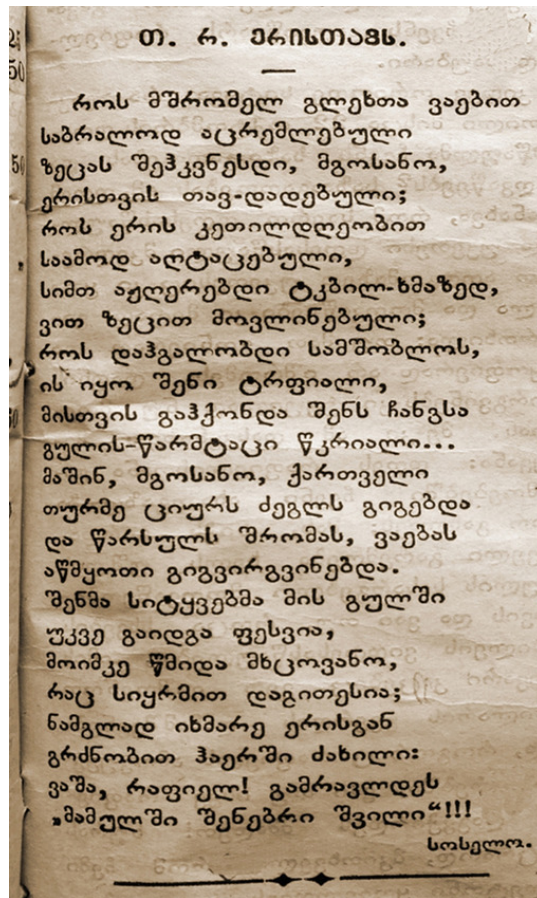 თ. რ. ერისთავს.
როს მშრომელ გლეხთა ვაებით
საბრალოდ აცრემლებული
ზეცას შეჰკვნესდი, მგოსანო,
ერისთვის თავ-დადებული;
როს ერის კეთილდღეობით
საამოდ აღტაცებული,
სიმთ აჟღერებდი ტკბილ-ხმაზედ,
ვით ზეცით მოვლინებული;
როს დაჰგალობდი სამშობლოს,
ის იყო შენი ტრფიალი,
მისთვის გაჰქონდა შენს ჩანგსა
გულის-წარმტაცი წკრიალი...
მაშინ, მგოსანო, ქართველი
თურმე ციურს ძეგლს გიგებდა
და წარსულს შრომას, ვაებას
აწმყოთი გიგვირგვინებდა.
შენმა სიტყვებმა მის გულში
უკვე გაიდგა ფესვია,
მოიმკე წმიდა მხცოვანო,
რაც სიყრმით დაგითესია;
ნამგლად იხმარე ერისგან
გრძნობით ჰაერში ძახილი:
ვაშა, რაფიელ! გამრავლდეს
„მამულში შენებრი შვილი“!!!
სოსელო.
50
50